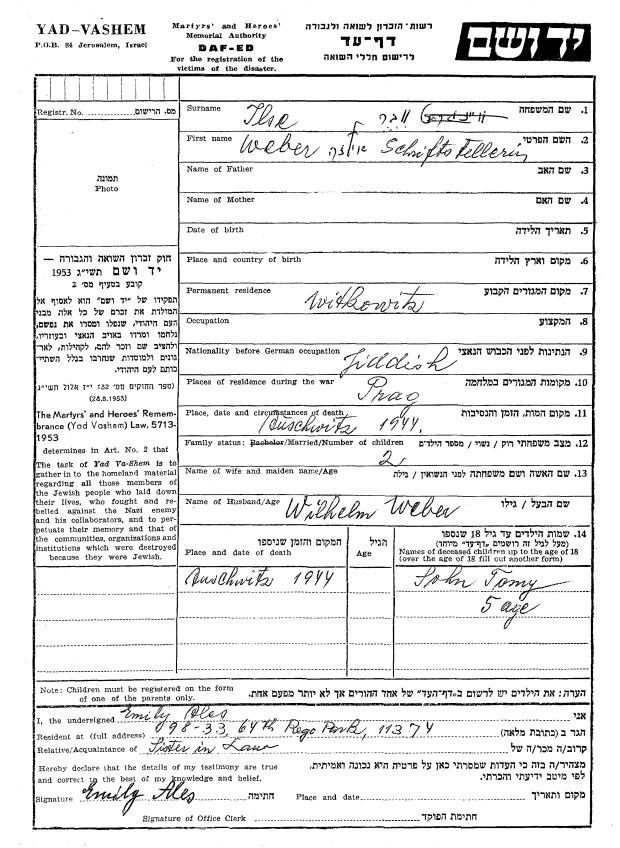 YAD-VASHEM
P.O.B. 84 Jerusalem, Israel
Martyrs' and Heroes'
Memorial Authority
DAF-ED
For the registration of the
victims of the disaster.
רשות-הזכרון לשואה ולגבורה
דף-עד
לרישום חללי השואה
יד ושם
Registr. No. מס. הרישום
תמונה
Photo
חוק זכרון השואה והגבורה —
יד ושם תשי״ג 1953
קובע בסעיף מס׳ 2
תפקידו של ״יד ושם״ הוא לאסוף אל
המולדת את זכרם של כל אלה מבני
העם היהודי, שנפלו ומסרו את נפשם,
נלחמו ומרדו באויב הנאצי ובעוזריו,
ולהציב שם וזכר להם, לקהילות, לאר-
גונים ולמוסדות שנחרבו בגלל השתיי-
כותם לעם היהודי.
(ספר החוקים מס׳ 132 י״ז אלול תשי״ג
(28.8.1953)
The Martyrs' and Heroes' Remem-
brance (Yad Vashem) Law, 5713-
1953
determines in Art. No. 2 that
The task of Yad Va-Shem is to
gather in to the homeland material
regarding all those members of
the Jewish people who laid down
their lives, who fought and re-
belled against the Nazi enemy
and his collaborators, and to per-
petuate their memory and that of
the communities, organizations and
institutions which were destroyed
because they were Jewish.
Surname Ilse ובר 1. שם המשפחה
First name Weber אילזה Schriftstellerin 2. השם הפרטי
Name of Father 3. שם האב
Name of Mother 4. שם האם
Date of birth 5. תאריך הלידה
Place and country of birth 6. מקום וארץ הלידה
Permanent residence Witkowitz 7. מקום המגורים הקבוע
Occupation 8. המקצוע
Nationality before German occupation Jiddish 9. הנתינות לפני הכבוש הנאצי
Places of residence during the war Prag 10. מקומות המגורים במלחמה
Place, date and circumstances of death Auschwitz 1944. 11. מקום המות, הזמן והנסיבות
Family status: Bachelor/Married/Number of children 2 12. מצב משפחתי רוק / נשוי / מספר הילדים
Name of wife and maiden name/Age 13. שם האשה ושם משפחתה לפני הנשואין / גילה
Name of Husband/Age Wilhelm Weber שם הבעל / גילו
המקום והזמן שניספו
Place and date of death
הגיל
Age
14. שמות הילדים עד גיל 18 שנספו
(מעל לגיל זה רושמים ״דף-עד״ מיוחד)
Names of deceased children up to the age of 18
(over the age of 18 fill out another form)
Auschwitz 1944 John Tomy
5 age
Note: Children must be registered on the form
of one of the parents only.
הערה: את הילדים יש לרשום ב״דף-העד״ של אחד ההורים אך לא יותר מפעם אחת.
I, the undersigned Emily Ales אני
Resident at (full address) 98-33, 64th Rego Park, 11374 הגר ב (כתובת מלאה)
Relative/Acquaintance of Sister in Law קרוב/ה מכר/ה של
Hereby declare that the details of my testimony are true
and correct to the best of my knowledge and belief.
מצהיר/ה בזה כי העדות שמסרתי כאן על פרטיה היא נכונה ואמיתית,
לפי מיטב ידיעתי והכרתי.
Signature Emily Ales חתימה Place and date מקום ותאריך
Signature of Office Clerk חתימת הפוקד